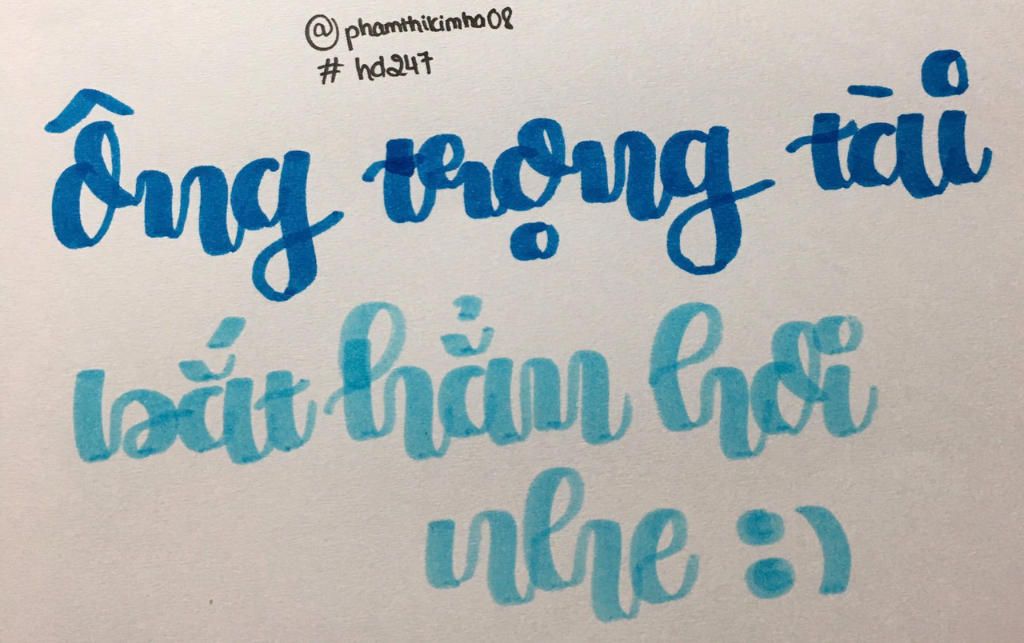 @phamthikimha08
#hd247
ông trọng tài
bắt hẳn hơi
nhe :)